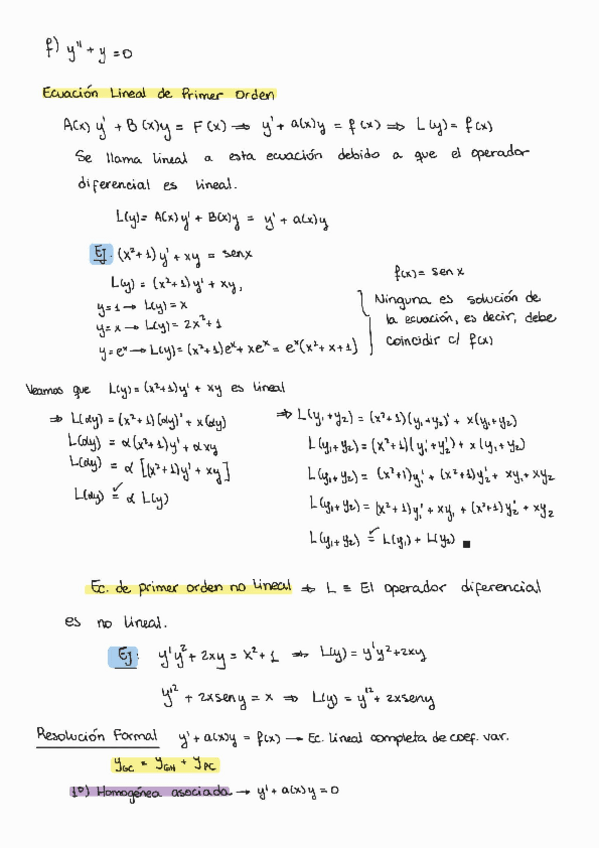 f) y'' + y = 0
Ecuación Lineal de Primer Orden
A(x) y' + B(x)y = F(x) ⇒ y' + a(x)y = f(x) ⇒ L(y) = f(x)
Se llama lineal a esta ecuación debido a que el operador
diferencial es lineal.
L(y) = A(x)y' + B(x)y = y' + a(x)y
Ej. (x²+1)y' + xy = senx
L(y) = (x²+1)y' + xy,
y=1 → L(y)=x
y=x → L(y)= 2x²+1
y=eˣ → L(y)=(x²+1)eˣ + xeˣ = eˣ(x²+x+1)
f(x) = sen x
Ninguna es solución de
la ecuación, es decir, debe
coincidir c/ f(x)
Veamos que L(y)=(x²+1)y' + xy es lineal
⇒ L(αy) = (x²+1)(αy)' + x(αy)
L(αy) = α(x²+1)y' + αxy
L(αy) = α [(x²+1)y' + xy]
L(αy) =✓ α L(y)
⇒ L(y₁+y₂) = (x²+1)(y₁+y₂)' + x(y₁+y₂)
L(y₁+y₂) = (x²+1)(y₁'+y₂') + x(y₁+y₂)
L(y₁+y₂) = (x²+1)y₁' + (x²+1)y₂' + xy₁+xy₂
L(y₁+y₂) = (x²+1)y₁' + xy₁ + (x²+1)y₂' + xy₂
L(y₁+y₂) =✓ L(y₁) + L(y₂) ■
Ec. de primer orden no lineal ⇒ L ≡ El operador diferencial
es no lineal.
Ej: y'y² + 2xy = x²+1 ⇒ L(y) = y'y²+2xy
y'² + 2xseny = x ⇒ L(y) = y'² + 2xseny
Resolución Formal y' + a(x)y = f(x) → Ec. lineal completa de coef. var.
y_GC = y_GH + y_PC
1º) Homogénea asociada → y' + a(x)y = 0